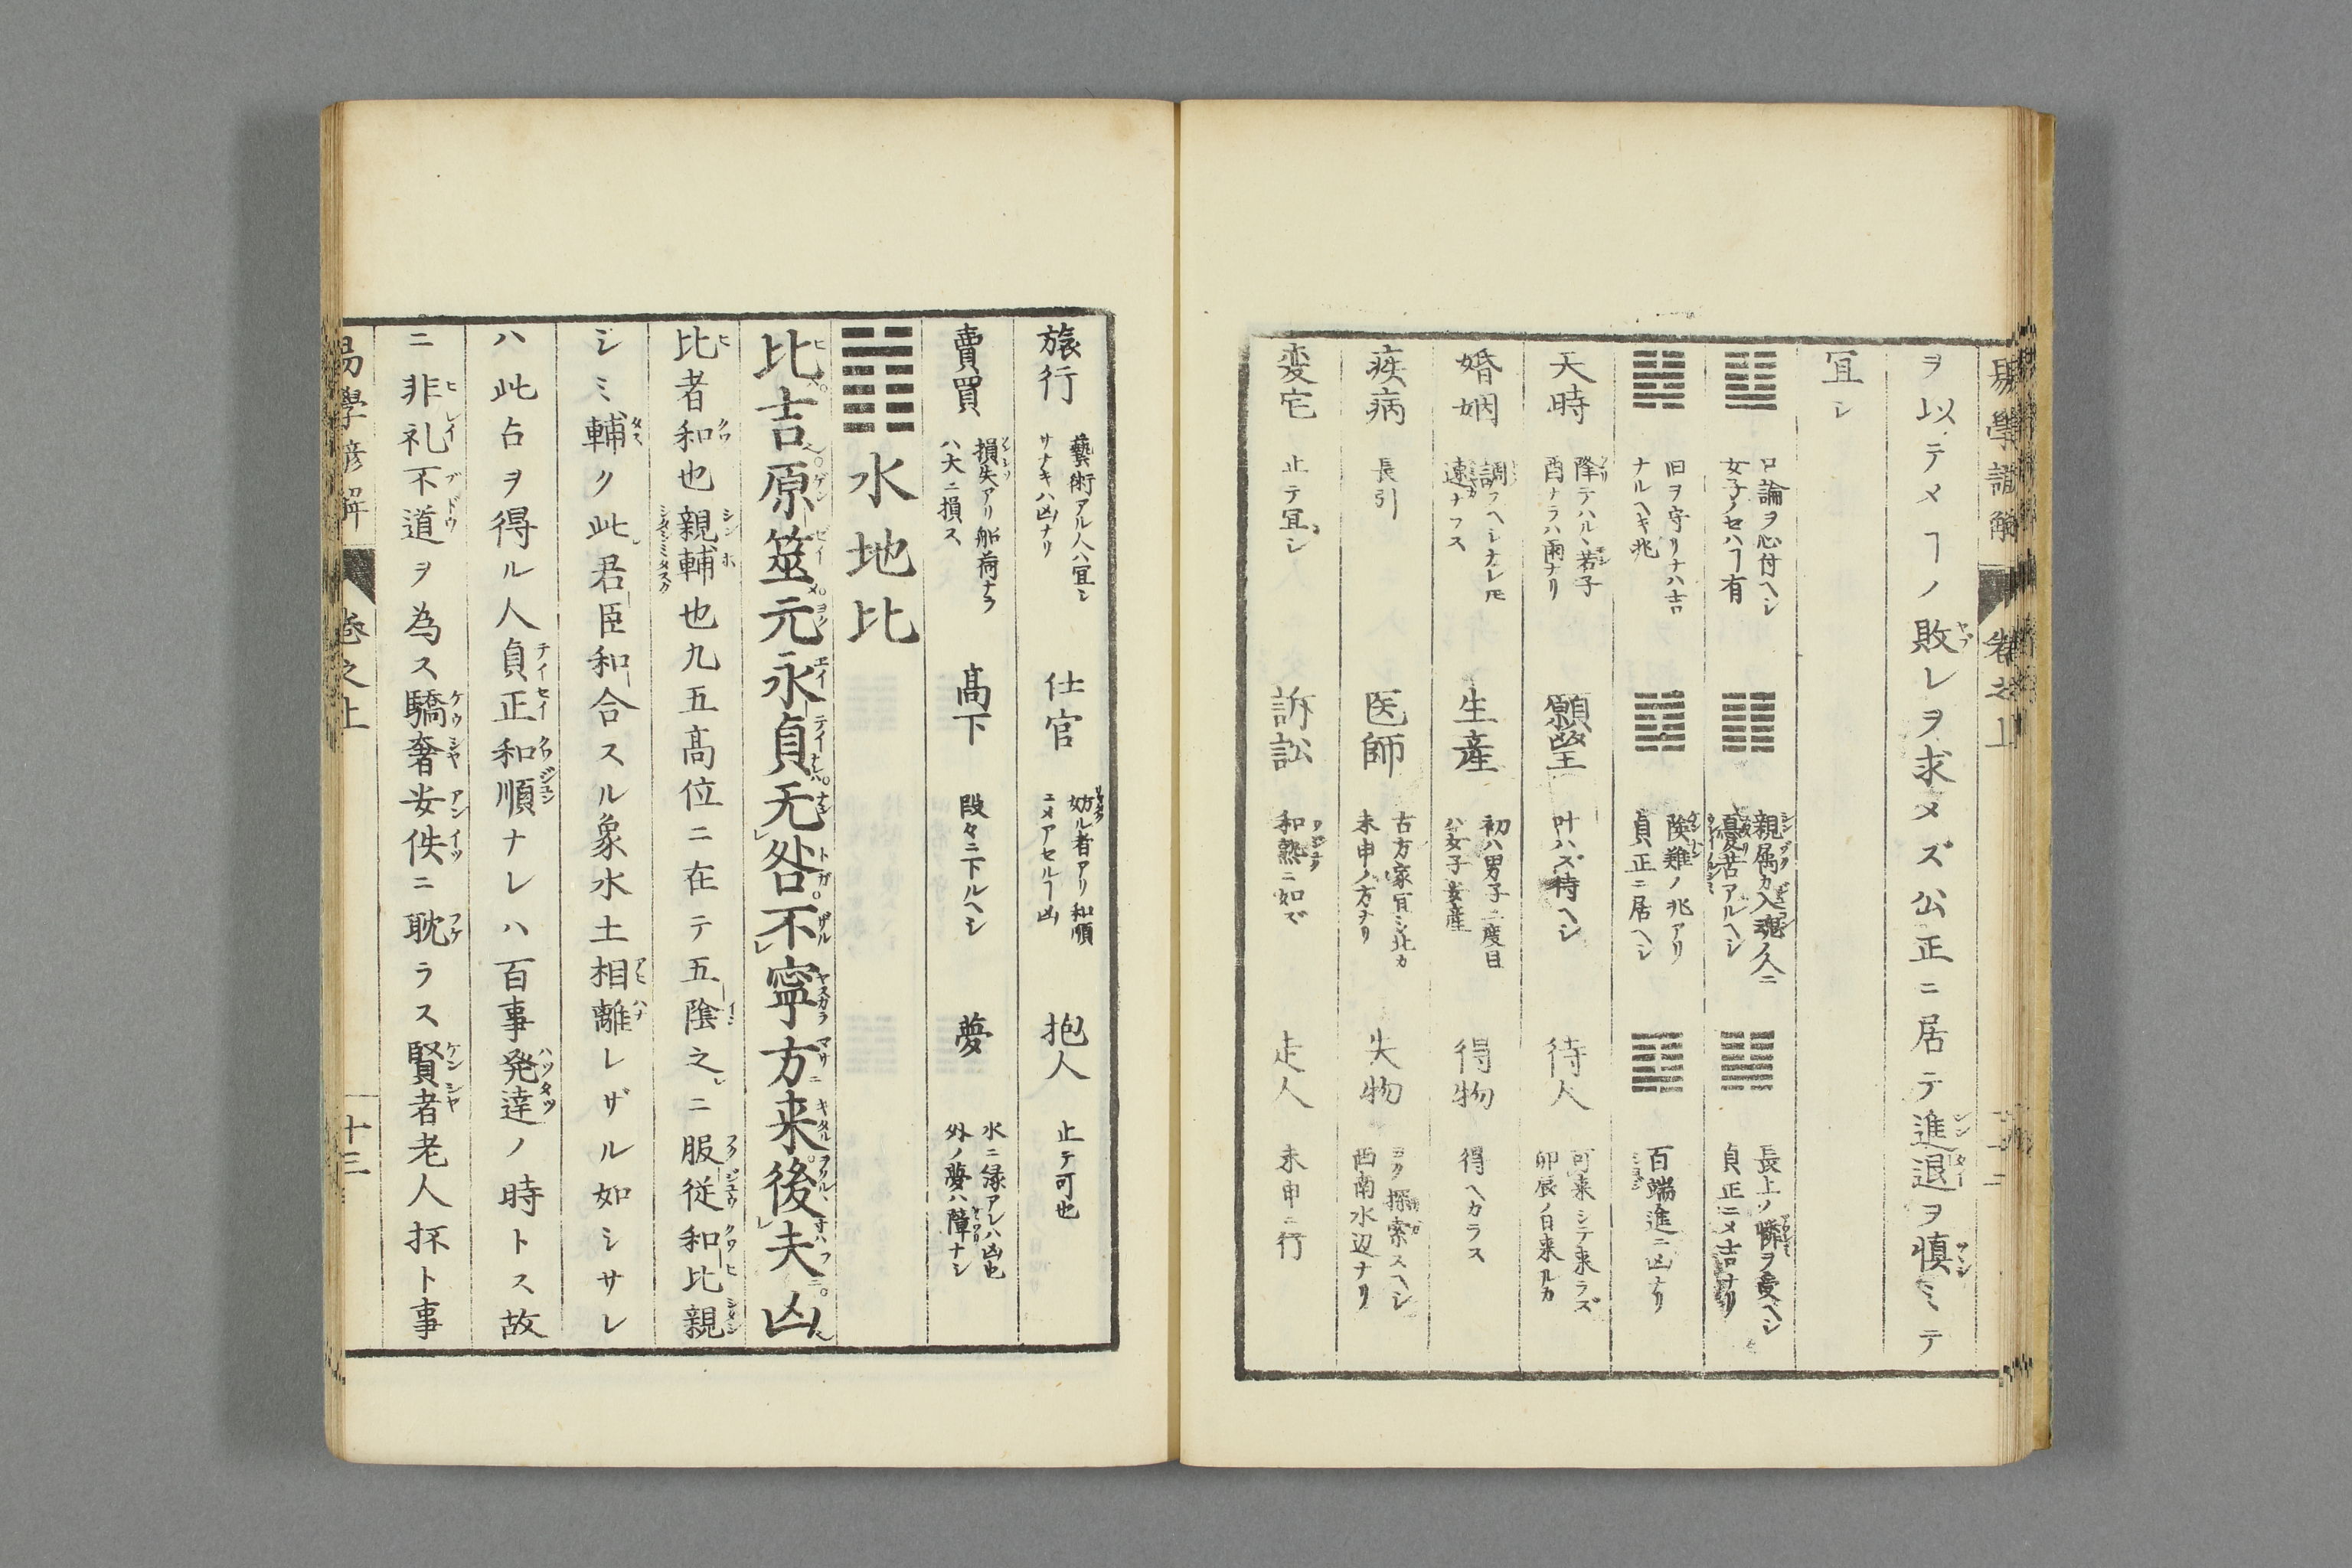 ヲ以テメヿノ敗レヲ求メズ公正ニ居テ進退ヲ慎ミテ
宜シ
口論ヲ心付ヘシ
女子ノセハヿ有
親属カ入魂ノ人ニ
憂苦アルヘシ
長上ノ憐ヲ受ベシ
貞正ニメ吉ナリ
旧ヲ守リナハ吉
ナルヘキ兆
険難ノ兆アリ
貞正ニ居ヘシ
百端進ニ凶ナリ
天時
降テハルヽ若子
酉ナラハ雨ナリ
願望
叶ハズ待ヘシ
待人
可来シテ来ラズ
卯辰ノ日来ルカ
婚姻
調フヘシナレ𪜈
速ナラス
生産
初ハ男子二度目
ハ女子安産
得物
得ヘカラス
疾病
長引
医師
古方家宜シ北カ
未申ノ方ナリ
失物
ヨク探索スヘシ
西南水辺ナリ
変宅
止テ宜シ
訴訟
和熟ニ如ズ
走人
未申ニ行
旅行
藝術アル人ハ宜シ
サナキハ凶ナリ
仕官
妨ル者アリ和順
ニメアセルヿ凶
抱人
止テ可也
賣買
損失アリ船荷ナラ
ハ大ニ損ス
高下
段々ニ下ルヘシ
夢
水ニ縁アレハ凶也
外ノ夢ハ障ナシ
水地比
比吉原筮元永貞无咎不寧方来後夫凶
比者和也親輔也九五高位ニ在テ五陰之ニ服従和比親
シミ輔ク此君臣和合スル象水土相離レザル如シサレ
ハ此占ヲ得ル人貞正和順ナレハ百事発達ノ時トス故
ニ非礼不道ヲ為ス驕奢安佚ニ耽ラス賢者老人抔ト事
易學諺解
巻之上
十三